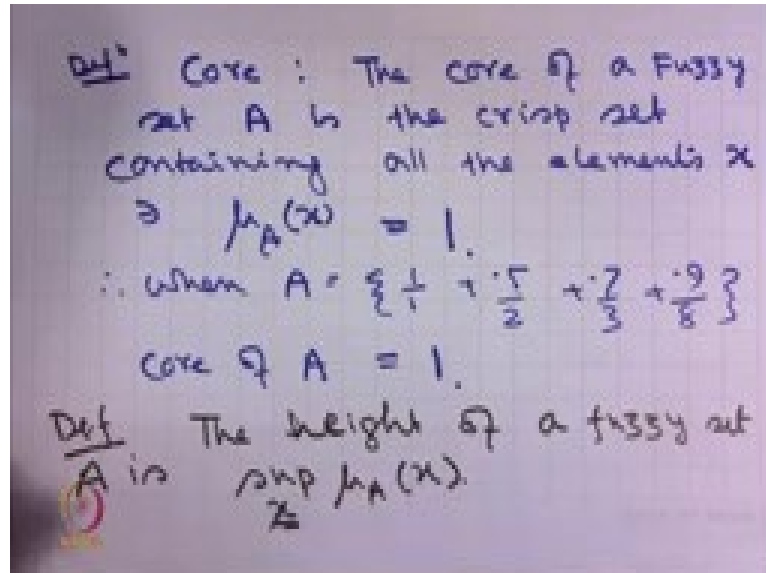 Def" Core : The core of a Fuzzy
set A is the crisp set
containing all the elements x
∋ μ_A(x) = 1.
∴ when A = { 1/1 + .5/2 + .7/3 + .9/8 }
Core of A = 1.
Def The height of a fuzzy set
A is sup_x μ_A(x).